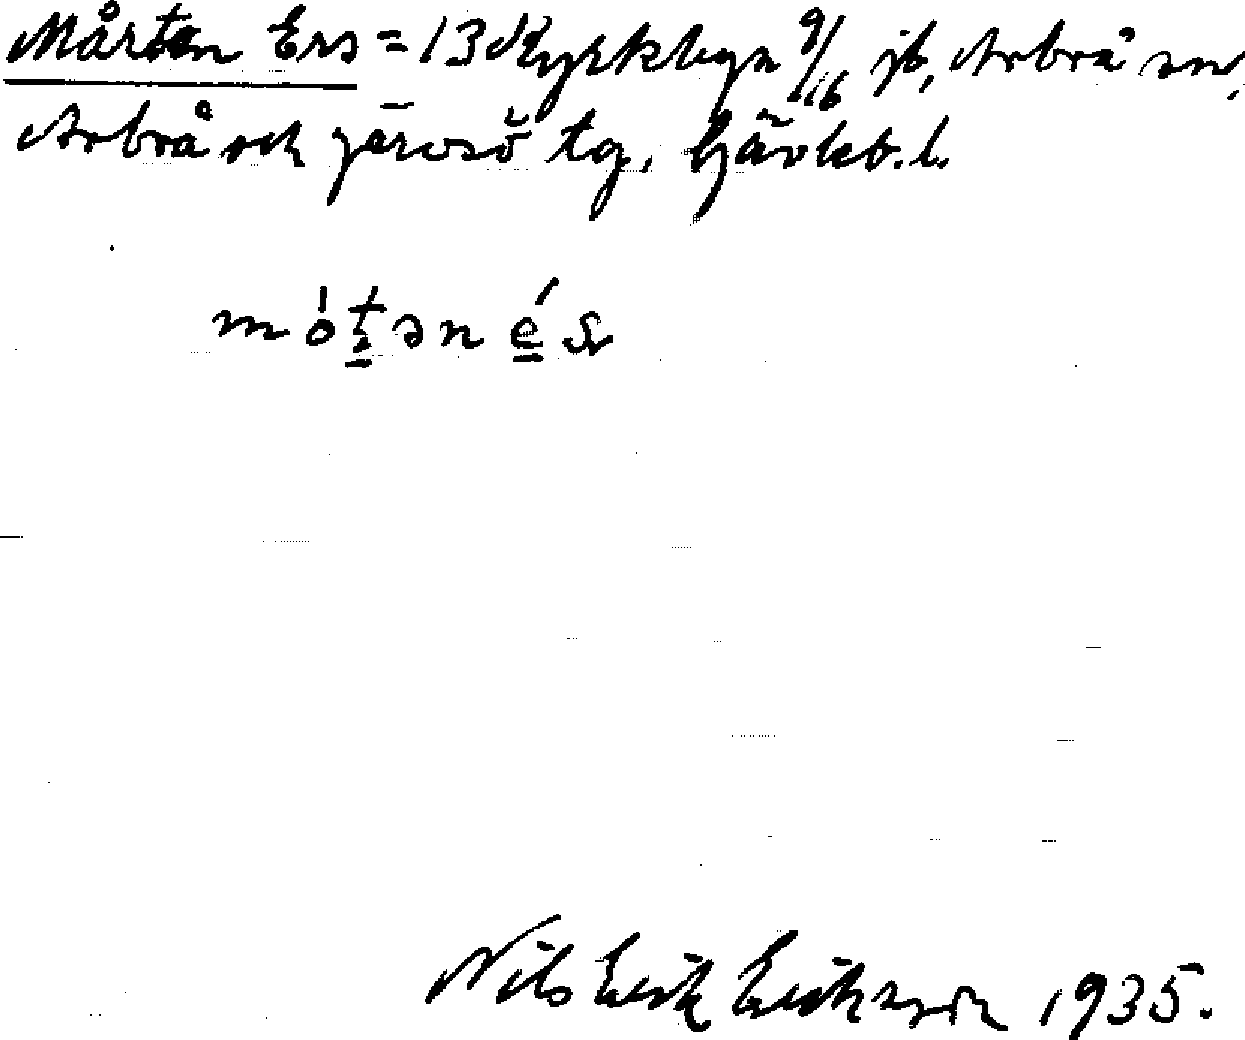 Mårten Ers = 13 Kyrkbyn 9/16 jb, Arbrå sn,
Arbrå och Järvsö tg, Gävleb. l.
mótən és
Nils Erik Eriksson 1935.